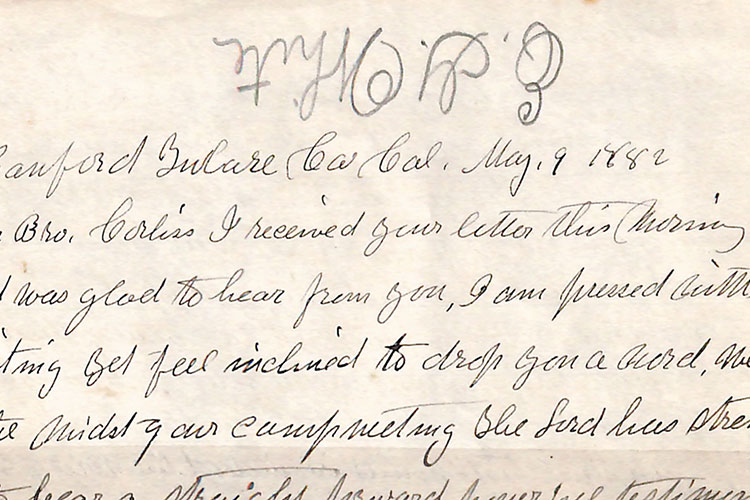 E. G. White
Hanford Tulare Co Cal. May. 9 1882
Bro. Corliss I received your letter this morning
was glad to hear from you, I am pressed with
yet feel inclined to drop you a word, We
midst of our campmeeting The Lord has
hear a straight forward